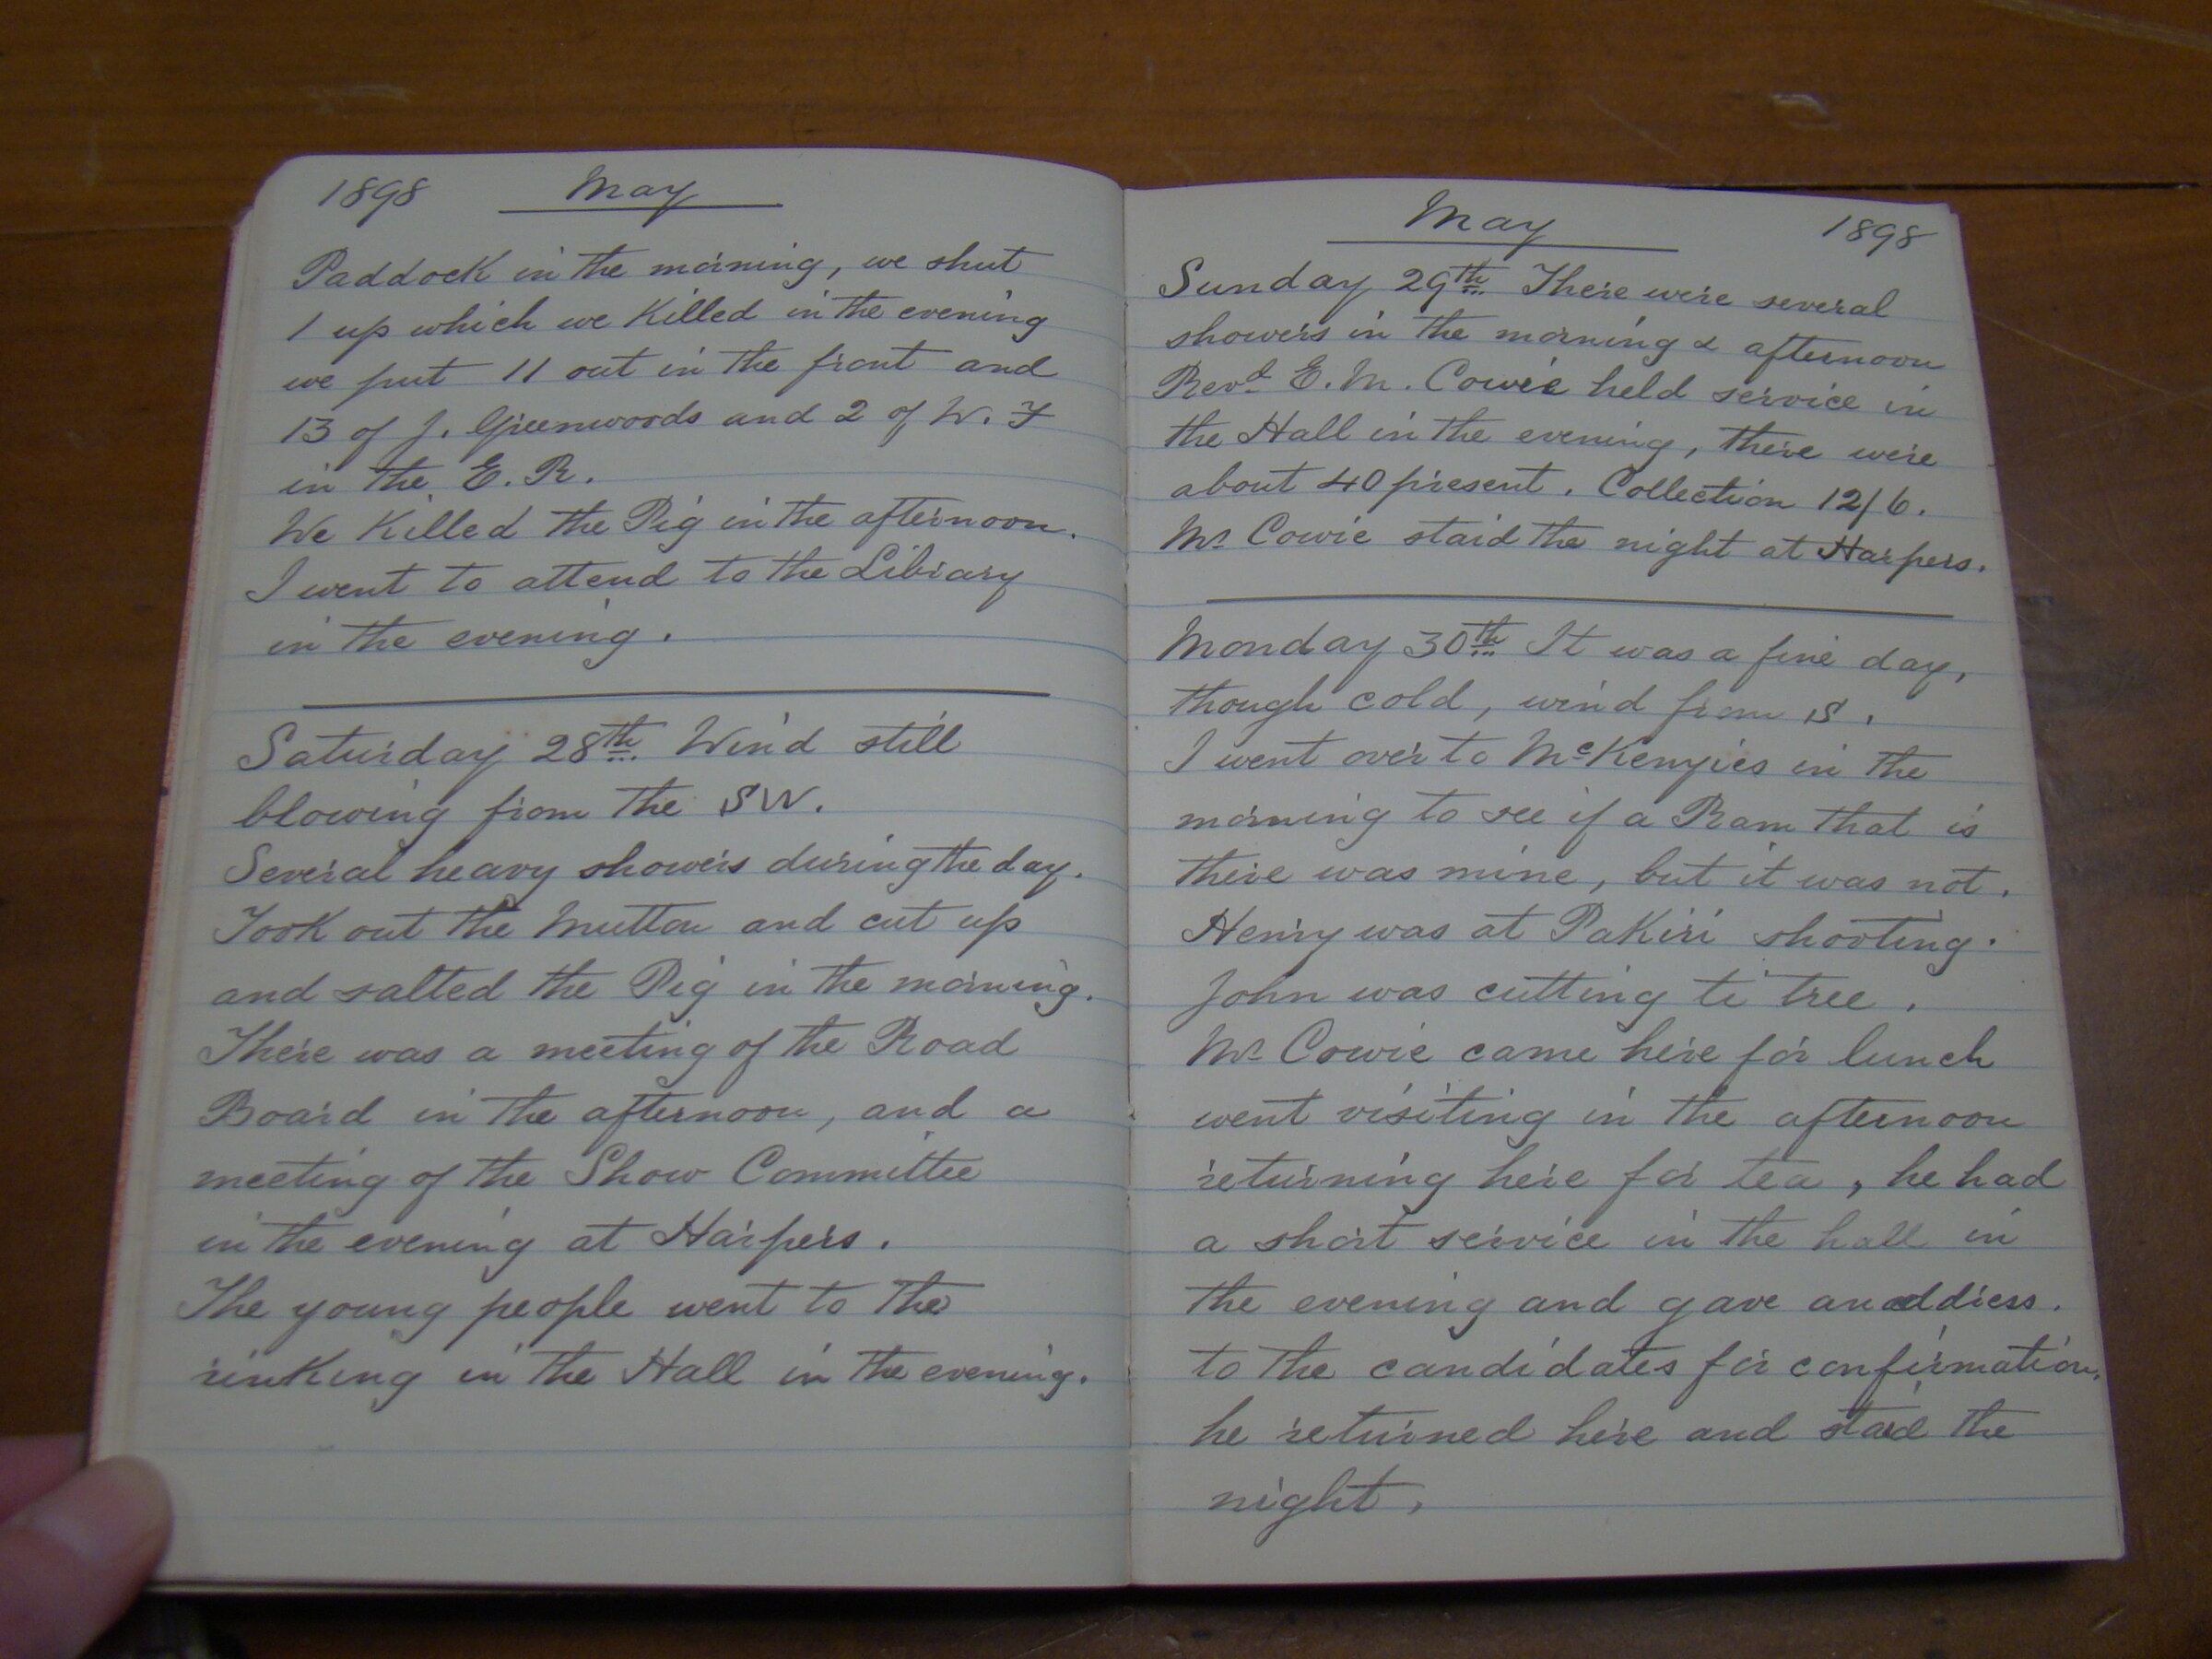 1898 May
Paddock in the morning, we shut
1 up which we Killed in the evening
we put 11 out in the front and
13 of J. Greenwoods and 2 of W. F
in the E. R.
We Killed the Pig in the afternoon.
I went to attend to the Library
in the evening.
Saturday 28th Wind still
blowing from the SW.
Several heavy showers during the day.
Took out the Mutton and cut up
and salted the Pig in the morning.
There was a meeting of the Road
Board in the afternoon, and a
meeting of the Show Committee
in the evening at Harpers.
The young people went to the
rinking in the Hall in the evening.
May 1898
Sunday 29th There were several
showers in the morning & afternoon
Revd E. M. Cowie held service in
the Hall in the evening, there were
about 40 present. Collection 12/6.
Mr Cowie staid the night at Harpers.
Monday 30th It was a fine day,
though cold, wind from S.
I went over to McKenzies in the
morning to see if a Ram that is
there was mine, but it was not.
Henry was at Pakiri shooting.
John was cutting ti tree.
Mr Cowie came here for lunch
went visiting in the afternoon
returning here for tea, he had
a short service in the hall in
the evening and gave an address.
to the candidates for confirmation.
he returned here and staid the
night.